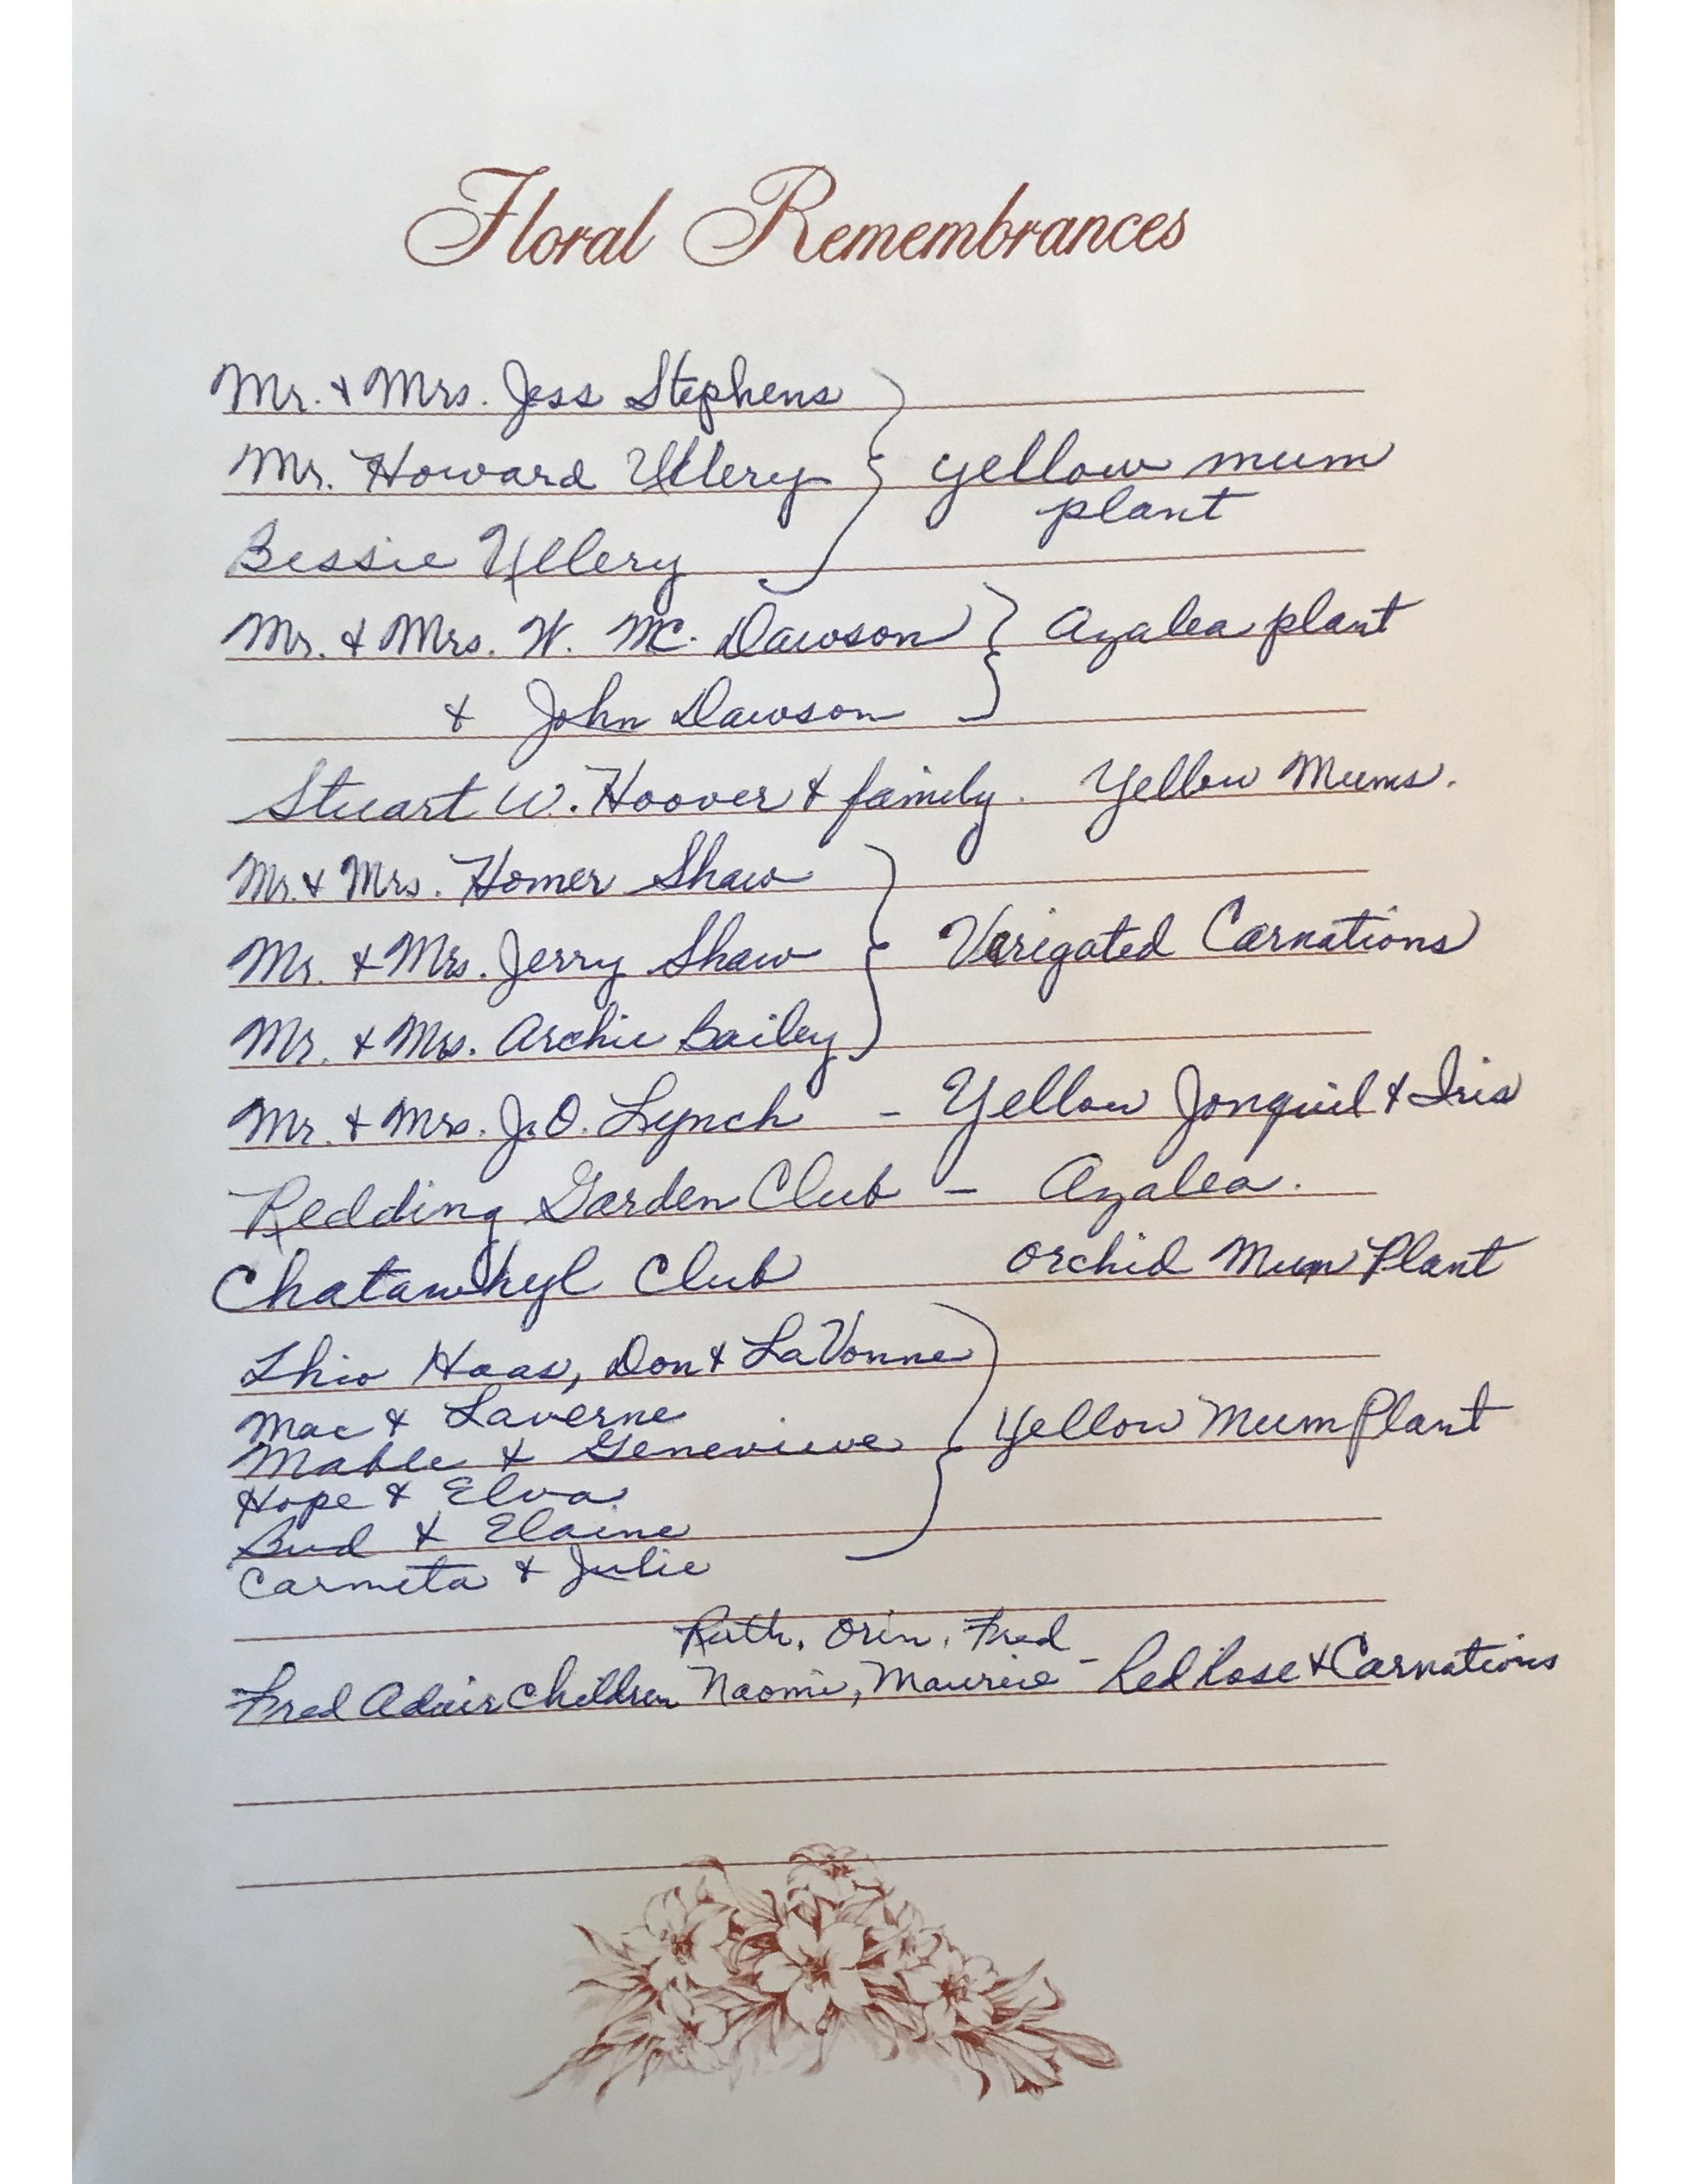 Floral Remembrances
Mr. & Mrs. Jess Stephens
Mr. Howard Ullery } yellow mum
plant
Bessie Ullery
Mr. & Mrs. W. Mc. Dawson } Azalea plant
& John Dawson
Stuart W. Hoover & family. Yellow Mums.
Mr. & Mrs. Homer Shaw
Mr. & Mrs. Jerry Shaw } Varigated Carnations
Mr. & Mrs. Archie Bailey
Mr. & Mrs. J. O. Lynch - Yellow Jonquil & Iris
Redding Garden Club - Azalea.
Club Orchid Mum Plant
Haas, Don & LaVonne
Mac & Laverne
Mable & Genevieve } Yellow Mum Plant
Hope & Elva
Bud & Elaine
Carmeta & Julie
Ruth, Orin, Fred
Fred Adair Children Naomi, Maurice - Red Rose & Carnations